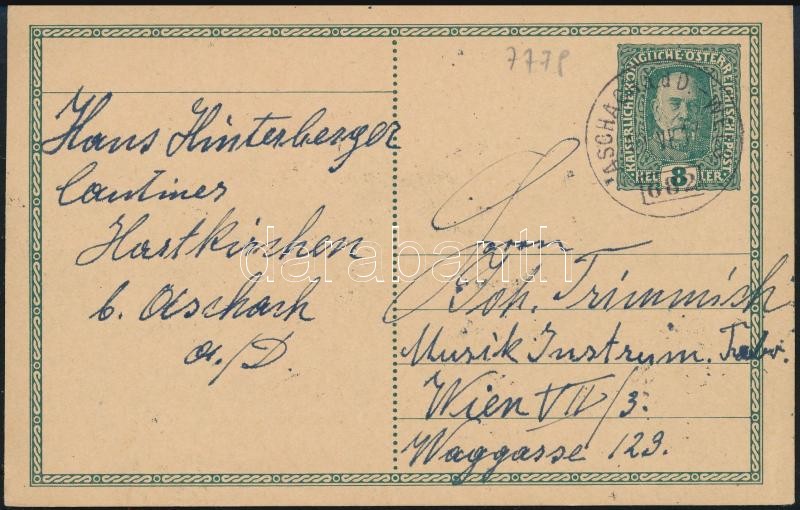 7778
KAISERLICHE KÖNIGLICHE ÖSTERREICHISCHE POST
8
HELLER
ASCHACH a. d. D.
682
Hans Hinterberger
Cantiner
Hartkirchen
b. Aschach
a./D.
Herrn
Joh. Trimmischl
Musik Instrum. Fabr.
Wien VII/3.
Waggasse 129.
darabanth